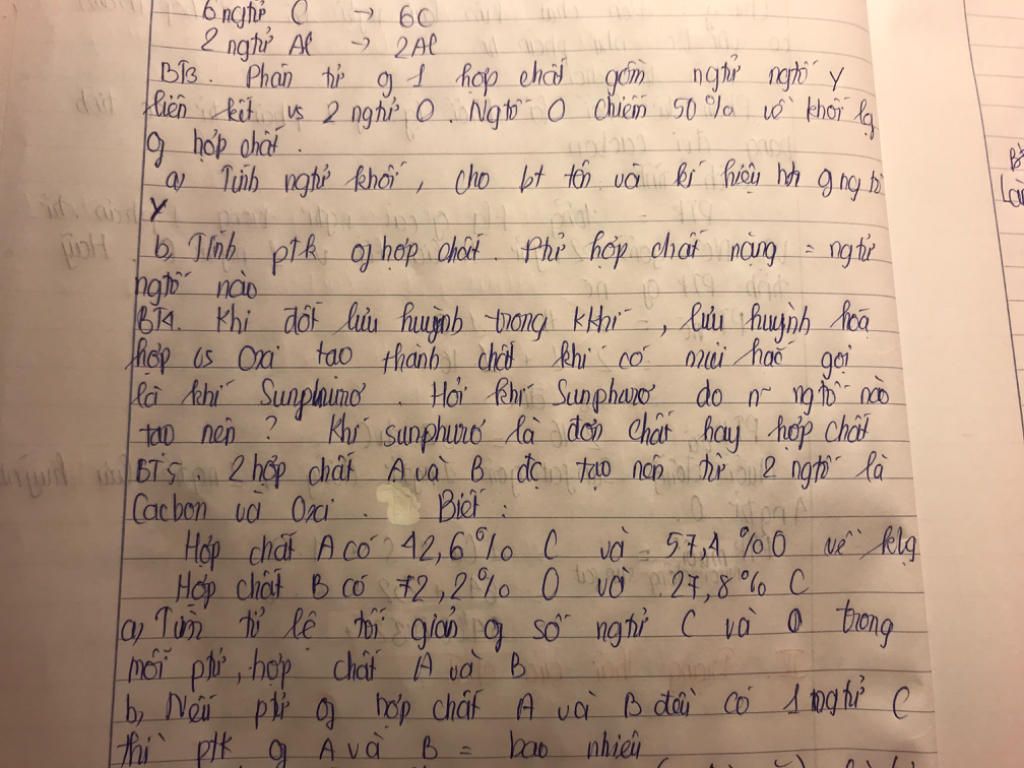 6 ngtử C → 6C
2 ngtử Al → 2Al
BT3. Phân tử g 1 hợp chất gồm ngtử ngtố Y
liên kết vs 2 ngtử O. Ngtố O chiếm 50% về khối lg
g hợp chất.
a) Tính ngtử khối, cho bt tên và kí hiệu hh g ngtố
Y
b, Tính ptk g hợp chất. Ptử hợp chất nặng = ngtử
ngtố nào
BT4. Khi đốt lưu huỳnh trong kkhí, lưu huỳnh hoá
hợp vs Oxi tạo thành chất khí có mùi hắc gọi
là khí Sunphurơ. Hỏi khí Sunphurơ do n~ ngtố nào
tạo nên? Khí sunphurơ là đơn chất hay hợp chất
BT5. 2 hợp chất A và B đc tạo nên từ 2 ngtố là
Cacbon và Oxi. Biết:
Hợp chất A có 42,6% C và 57,4% O về klg
Hợp chất B có 72,2% O và 27,8% C
a, Tìm tỷ lệ tối giản g số ngtử C và O trong
mỗi ptử, hợp chất A và B
b, Nếu ptử g hợp chất A và B đều có 1 ngtử C
thì ptk g A và B = bao nhiêu